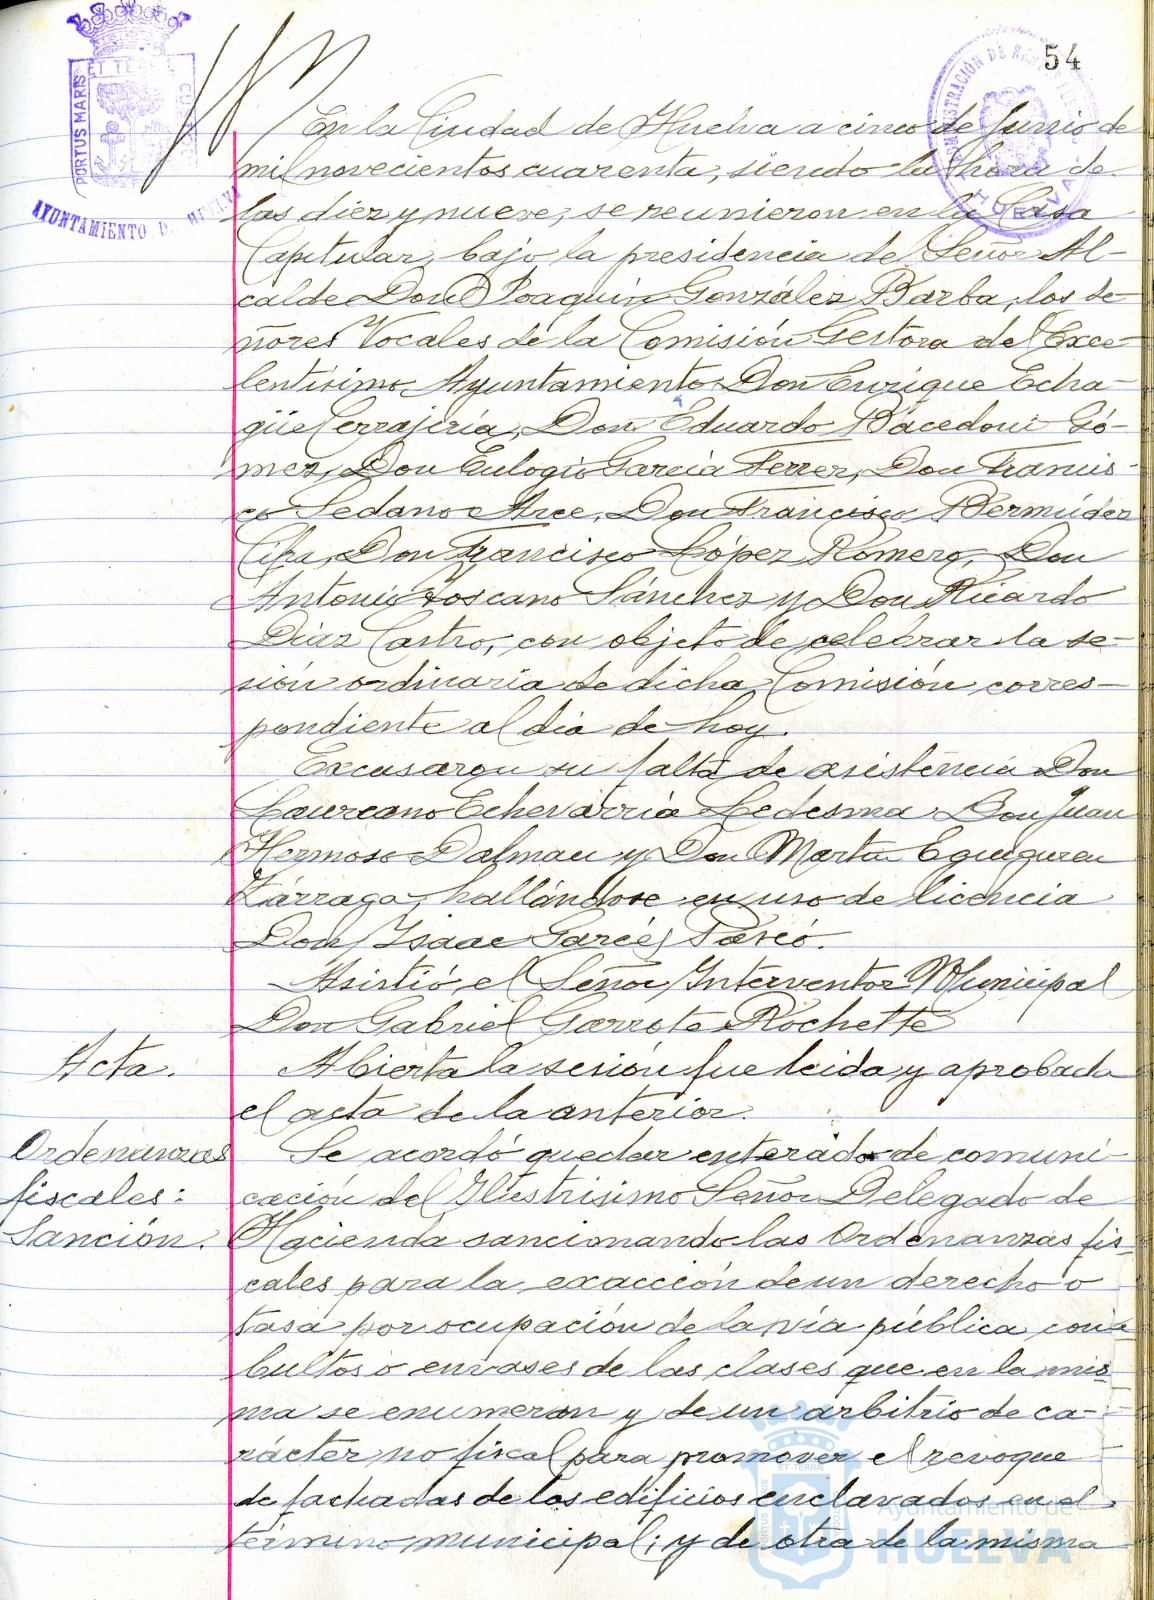 54
PORTUS MARIS
ET TERRAE
AYUNTAMIENTO DE HUELVA
ADMINISTRACIÓN DE
HUELVA
En la Ciudad de Huelva a cinco de Junio de
mil novecientos cuarenta, siendo la hora de
las diez y nueve, se reunieron en la Casa
Capitular, bajo la presidencia del Señor Al-
calde Don Joaquín González Barba, los se-
ñores Vocales de la Comisión Gestora del Exce-
lentísimo Ayuntamiento Don Enrique Echa-
güe Cerrajería, Don Eduardo Bácedoni Gó-
mez, Don Eulogio García Ferrer, Don Francis-
co Sedano Arce, Don Francisco Bermúdez
Don Francisco López Romero, Don
Antonio Toscano Sánchez y Don Ricardo
Díaz Castro, con objeto de celebrar la se-
sión ordinaria de dicha Comisión corres-
pondiente al día de hoy.
Excusaron su falta de asistencia Don
Laureano Echevarría Ledesma, Don Juan
Hermoso Dalmau y Don Martín Eguiguren
Zárraga, hallándose en uso de licencia
Don Isaac Garcés
Asistió el Señor Interventor Municipal
Don Gabriel Garrote Rochette
Acta.
Abierta la sesión fue leida y aprobada
el acta de la anterior.
Ordenanzas
fiscales:
Sanción.
Se acordó quedar enterado de comuni-
cación del Ilustrísimo Señor Delegado de
Hacienda sancionando las Ordenanzas fis-
cales para la exacción de un derecho o
tasa por ocupación de la vía pública con
bultos o envases de las clases que en la mis-
ma se enumeran y de un arbitrio de ca-
rácter no fiscal para promover el revoque
de fachadas de los edificios enclavados en el
término municipal; y de otra de la misma
Ayuntamiento de
HUELVA